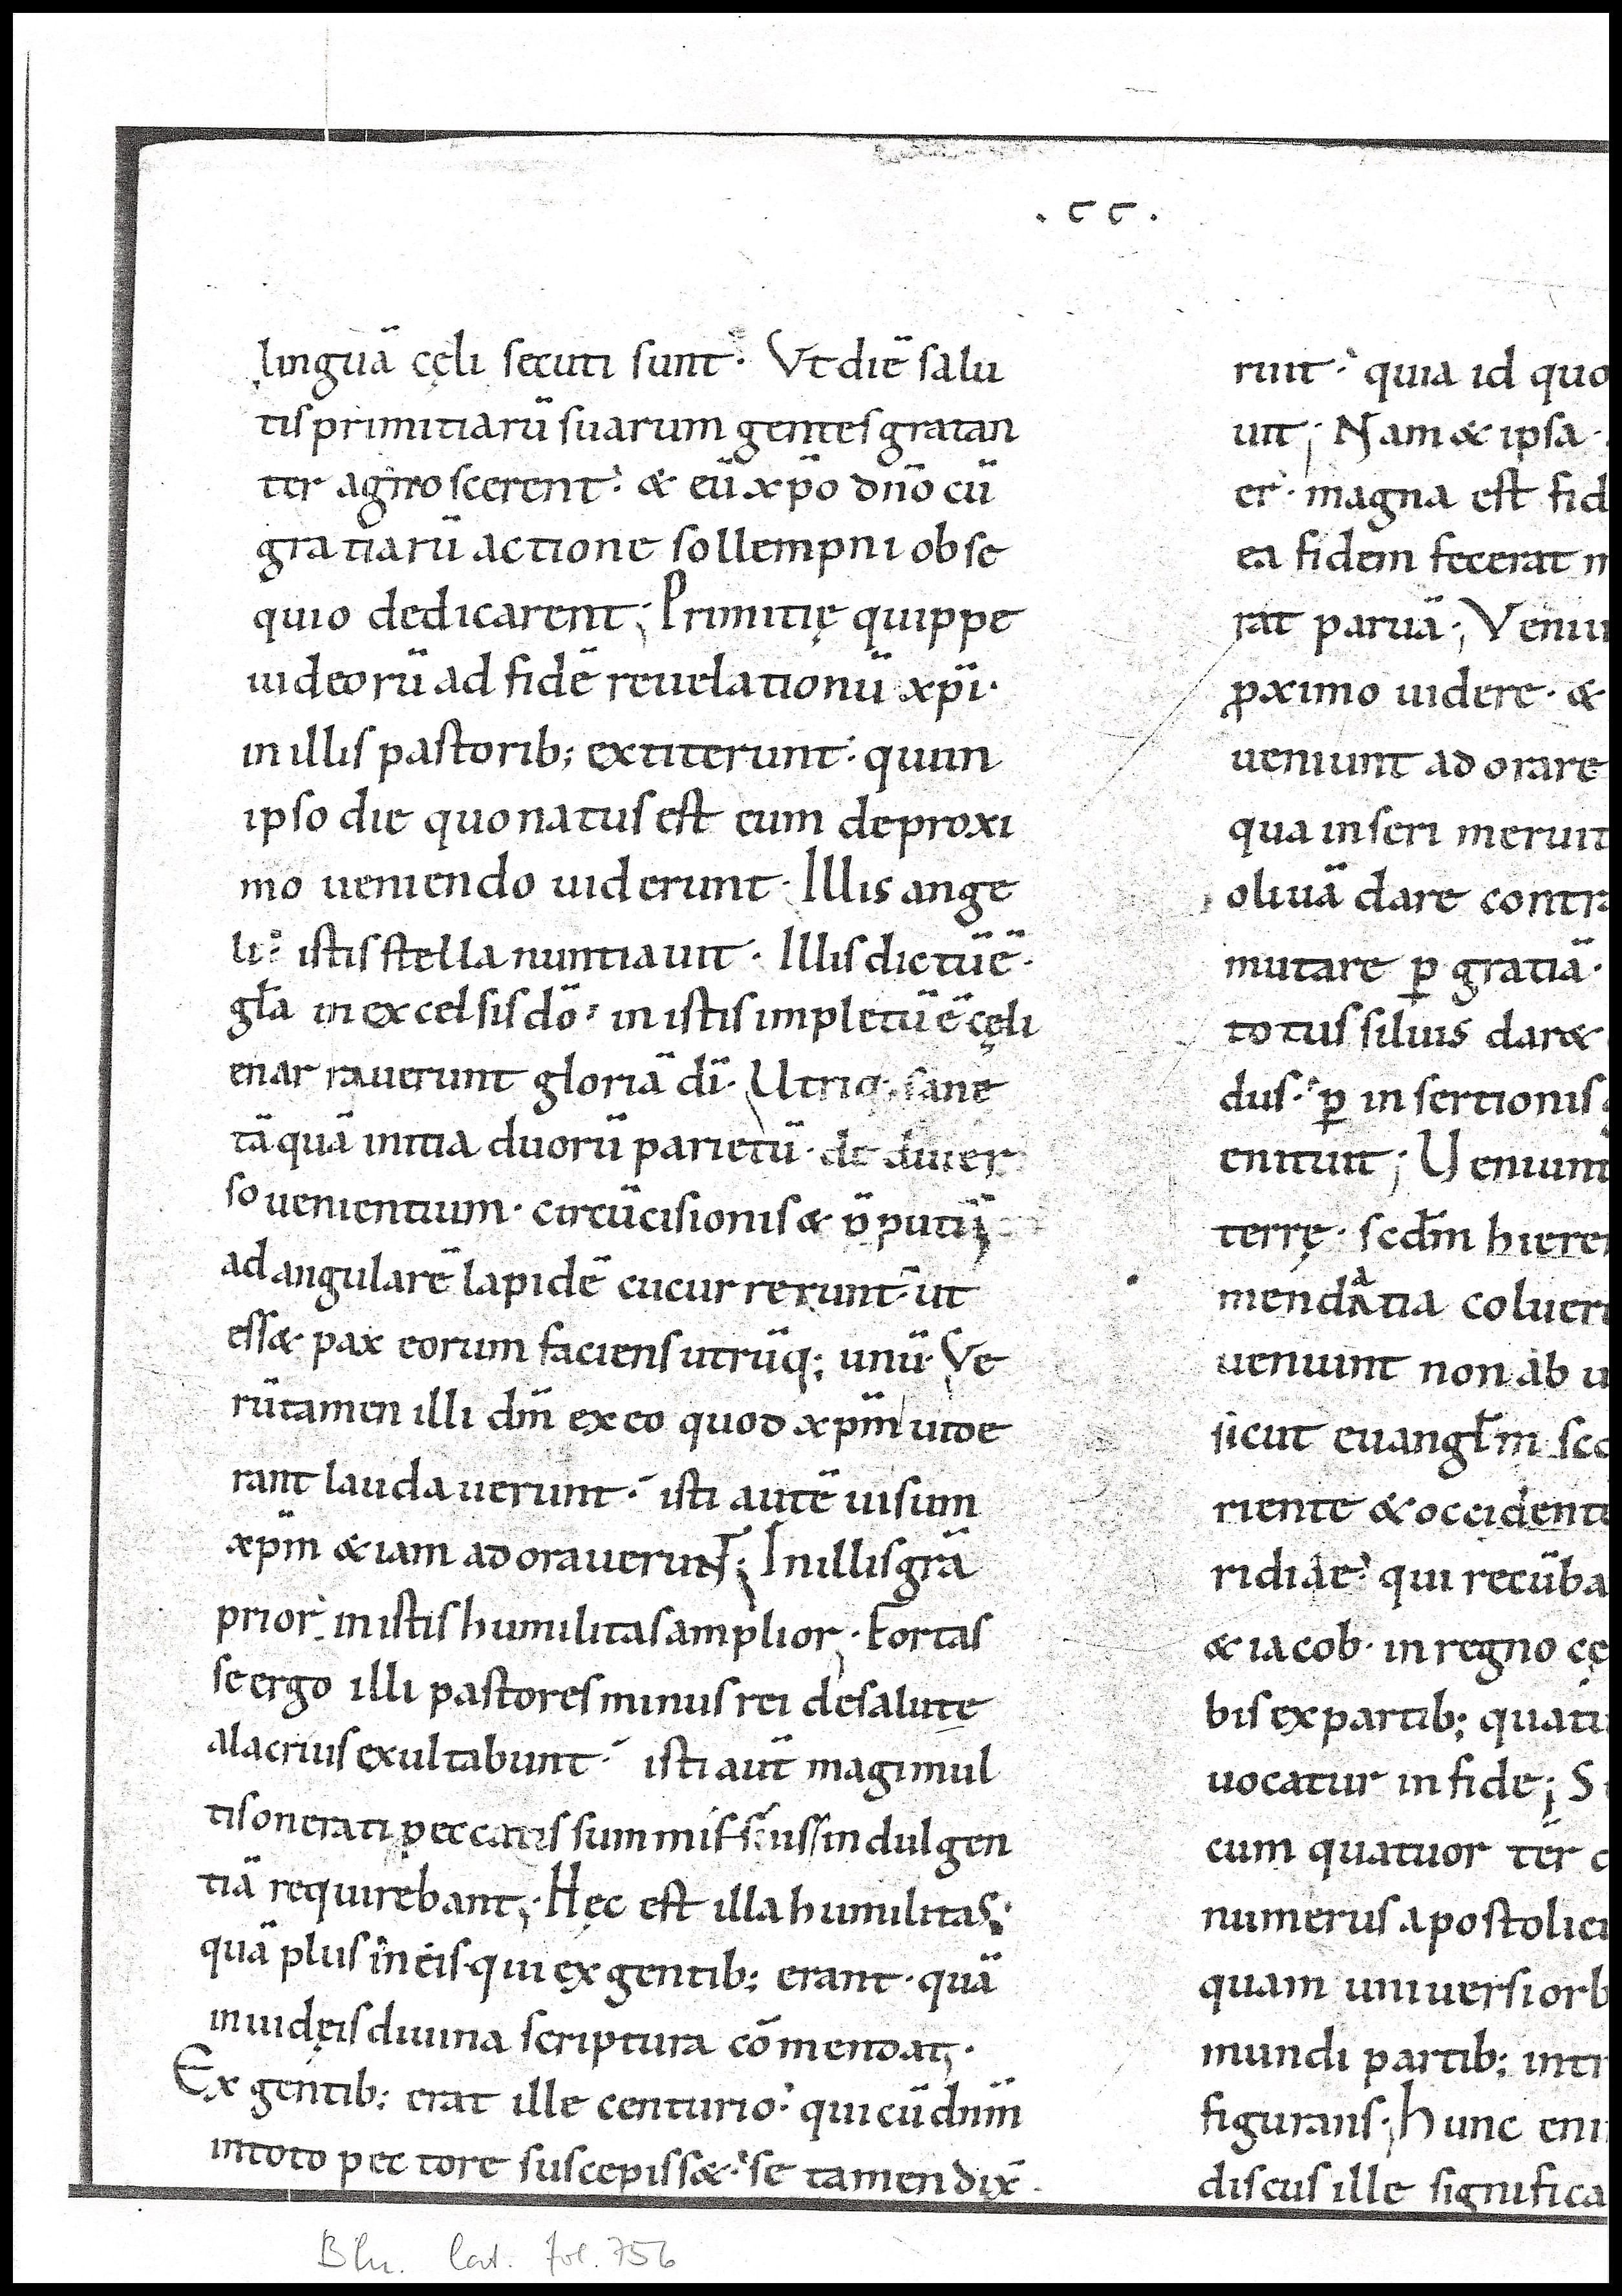 . c c .
linguā cęli secuti sunt. Vt diē salu
tis primitiarū suarum gentes gratan
ter agnoscerent. & eū xp̄o dn̄o cū
gratiarū actione sollempni obse
quio dedicarent; Primitię quippe
iudeorū ad fidē reuelationū xp̄i.
in illis pastorib; extiterunt. qui in
ipso die quo natus est eum de proxi
mo ueniendo uiderunt. Illis ange
li. istis stella nuntiauit. Illis dictū ē.
gl̄a in excelsis dō. in istis impletū ē cęli
enarrauerunt gloriā dī. Utriq; sane
tāquā initia duorū parietū. de diuer
so uenientium. circūcisionis & p̄putii
ad angularē lapidē cucurrerunt. ut
ess& pax eorum faciens utrūq; unū. Ve
rūtamen illi dm̄ ex eo quod xpm̄ uide
rant laudauerunt. isti autē uisum
xpm̄ &iam adorauerunt; In illis gr̄a
prior. in istis humilitas amplior. Fortas
se ergo illi pastores minus rei de salute
alacrius exultabunt. isti aut̄ magi mul
tis onerati peccatis summissius indulgen
tiā requirebant; Hęc est illa humilitas.
quā plus in eis qui ex gentib; erant. quā
in iudęis diuina scriptura cōmendat.
Ex gentib; erat ille centurio. qui cū dnm̄
in toto pectore suscepiss&. se tamen dix̄.
rint. quia id quo
uit; Nam & ipsa.
er. magna est fid
ea fidem fecerat m
rat paruā; Veniu
p̱ximo uidere. &
ueniunt adorare
qua inseri meruit
oliuā dare contra
mutare ꝑ gratiā.
totus siluis dar&
dus. ꝑ insertionis
enituit; Ueniunt
terrę. scdm̄ hiere
mendatia coluer
ueniunt non ab u
sicut euangl̄m sec
riente & occidente
ridiāe. qui recūba
& iacob. in regno cę
bis ex partib; quatu
uocatur in fide; S
cum quatuor ter
numerus apostolic
quam uniuersi orb
mundi partib; intr
figurans; Hunc eni
discus ille significa
Bln. lat. fol. 756